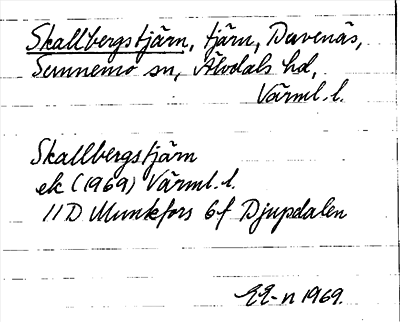 Skallbergstjärn, tjärn, Davenäs,
Sunnemo sn, Älvdals hd,
Värml. l.
Skallbergstjärn
ek (1969) Värml. l.
11D Munkfors 6f Djupdalen
1969.